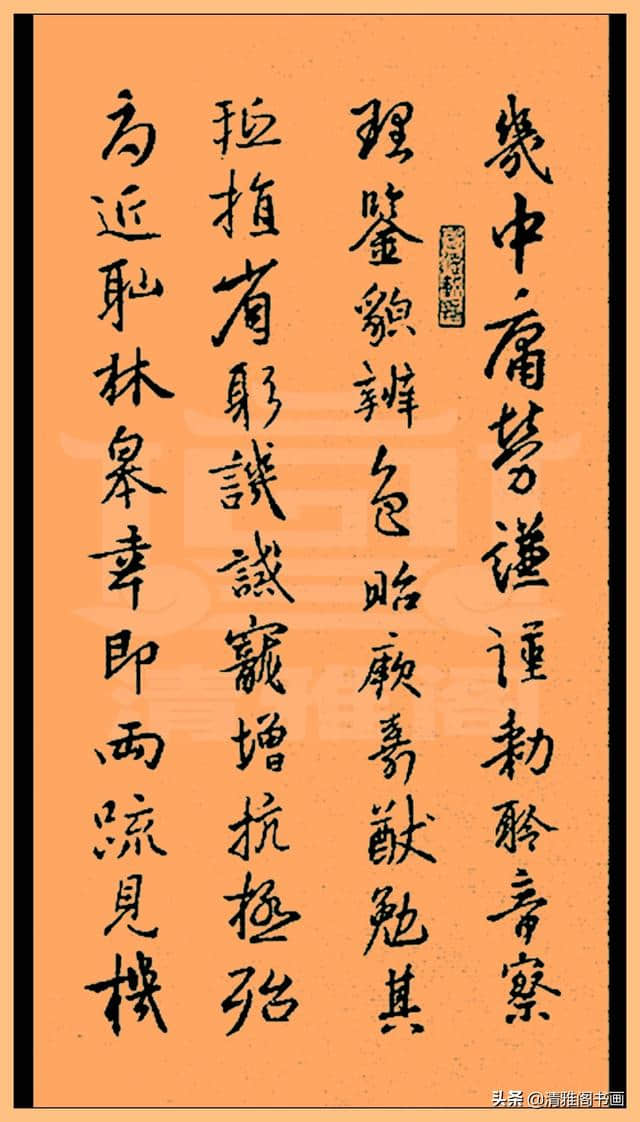 幾中庸勞謙謹勅聆音察
理鑒貌辨色貽厥嘉猷勉其
祗植省躬譏誡寵增抗極殆
辱近耻林皋幸即兩疏見機
清雅阁
头条 @清雅阁书画